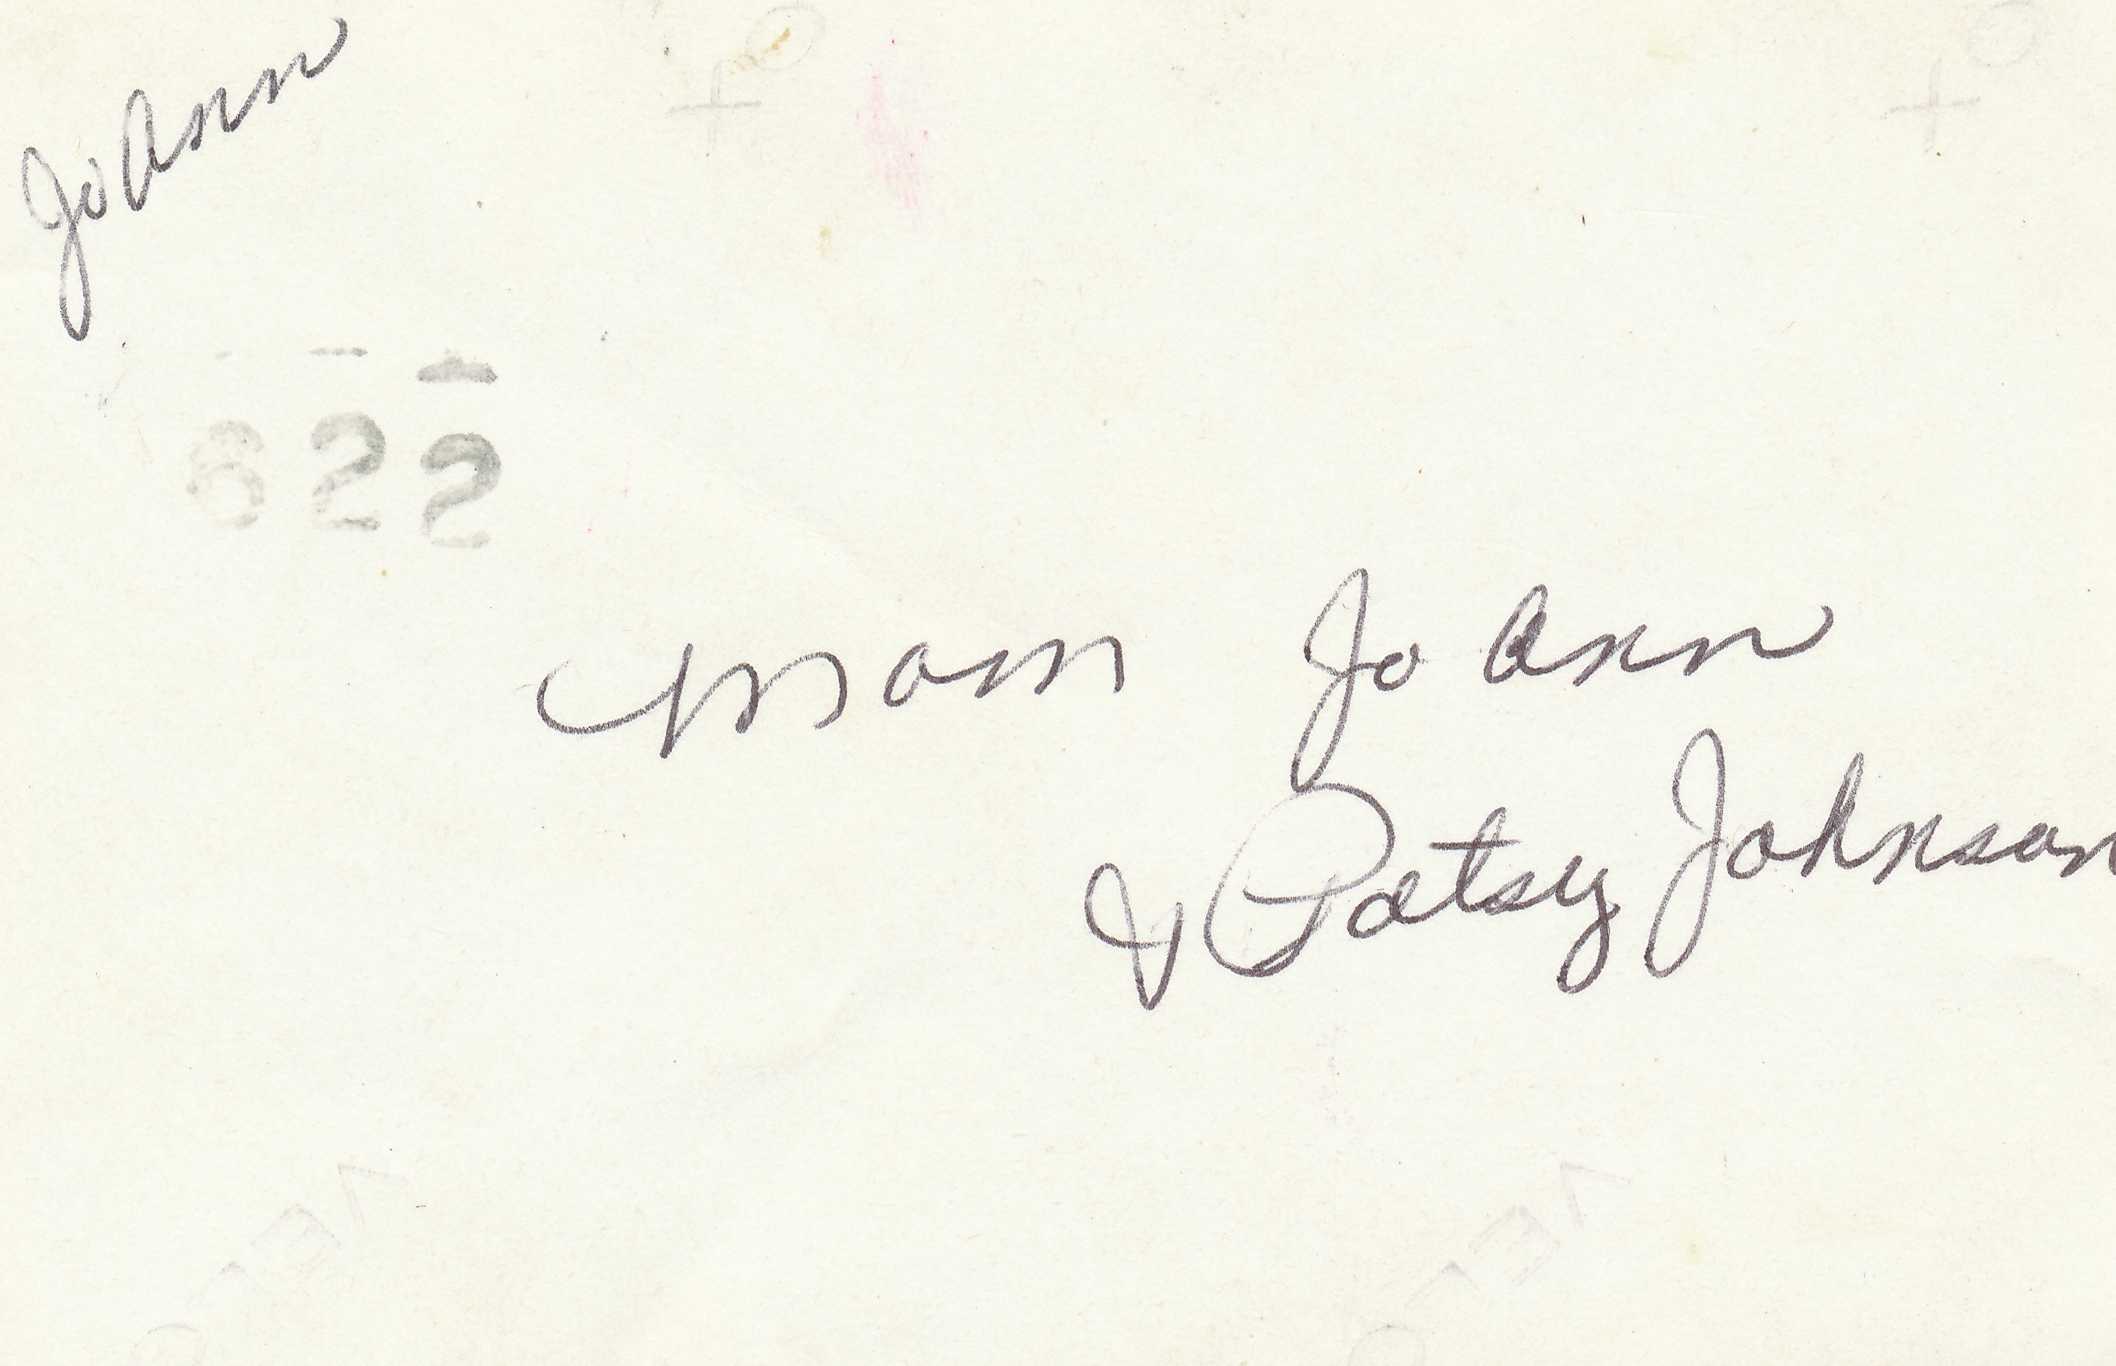 JoAnn
622
Mom Jo Ann
& Patsy Johnson